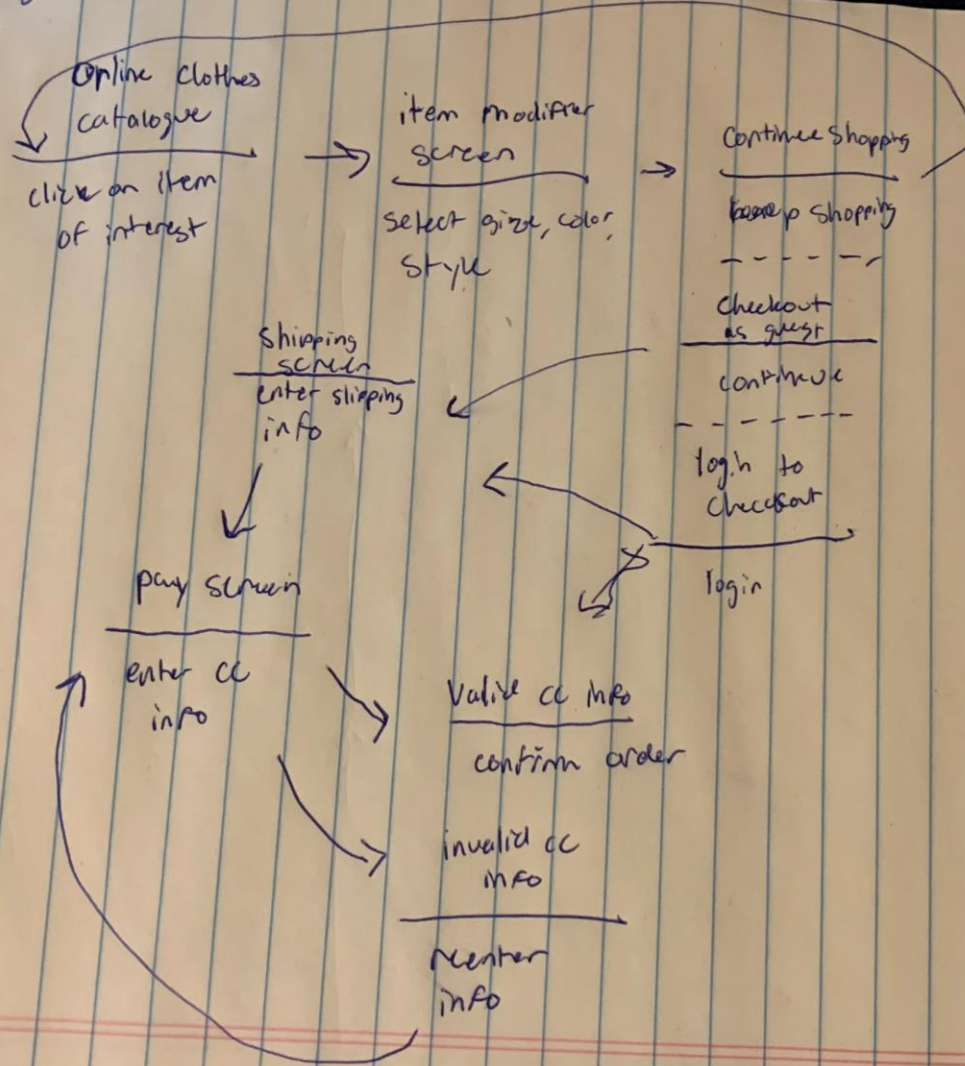 Online clothes
catalogue
click on an item
of interest
item modifier
screen
select size, color,
style
continue shopping
keep shopping
checkout
as guest
continue
login to
checkout
login
shipping
screen
enter shipping
info
pay screen
enter cc
info
Valid cc info
confirm order
invalid cc
info
reenter
info